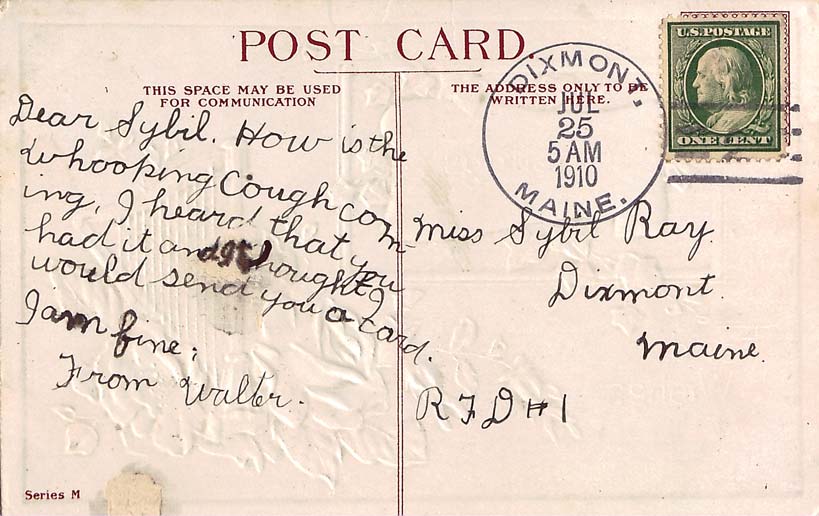 POST CARD
THIS SPACE MAY BE USED
FOR COMMUNICATION
THE ADDRESS ONLY TO BE
WRITTEN HERE.
DIXMONT.
JUL
25
5 AM
1910
MAINE.
U.S. POSTAGE
ONE CENT
Dear Sybil. How is the
Whooping Cough com-
ing, I heard that you
had it and thought I
would send you a card.
I am fine;
From Walter.
Miss Sybil Ray.
Dixmont.
Maine.
RFD #1
Series M